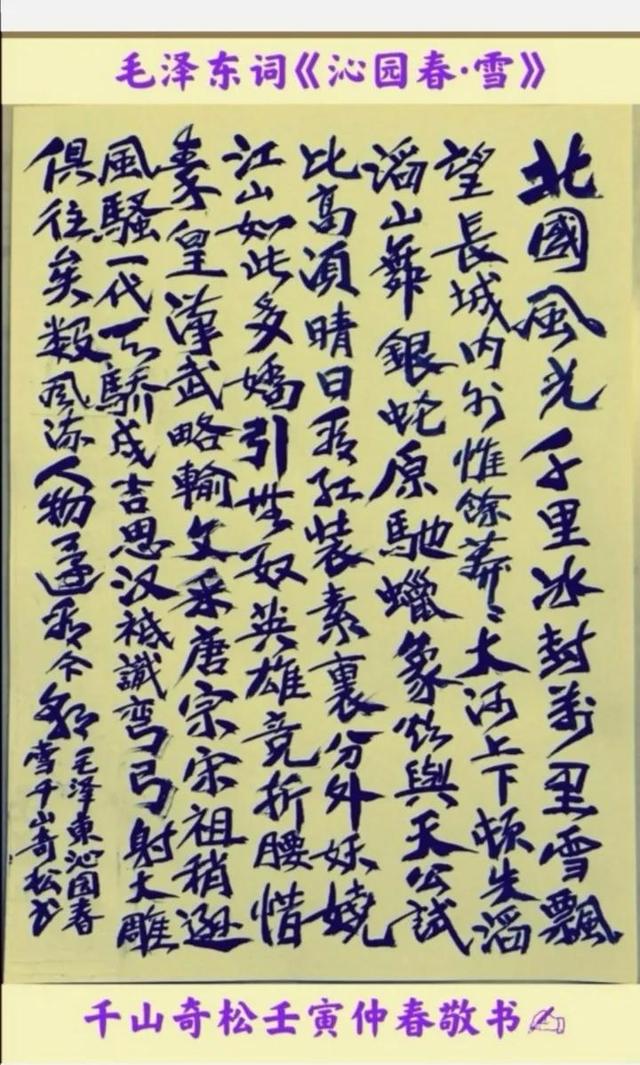 毛泽东词《沁园春·雪》
北國風光千里冰封萬里雪飄
望長城内外惟餘莽〻大河上下頓失滔
滔山舞銀蛇原馳蠟象欲與天公試
比高須晴日看红装素裹分外妖嬈
江山如此多嬌引無数英雄竞折腰惜
秦皇漢武略輸文采唐宗宋祖稍遜
風騷一代天驕成吉思汉祗識弯弓射大雕
俱往矣数風流人物還看今朝
毛澤東沁园春
雪千山奇松书
千山奇松壬寅仲春敬书✍